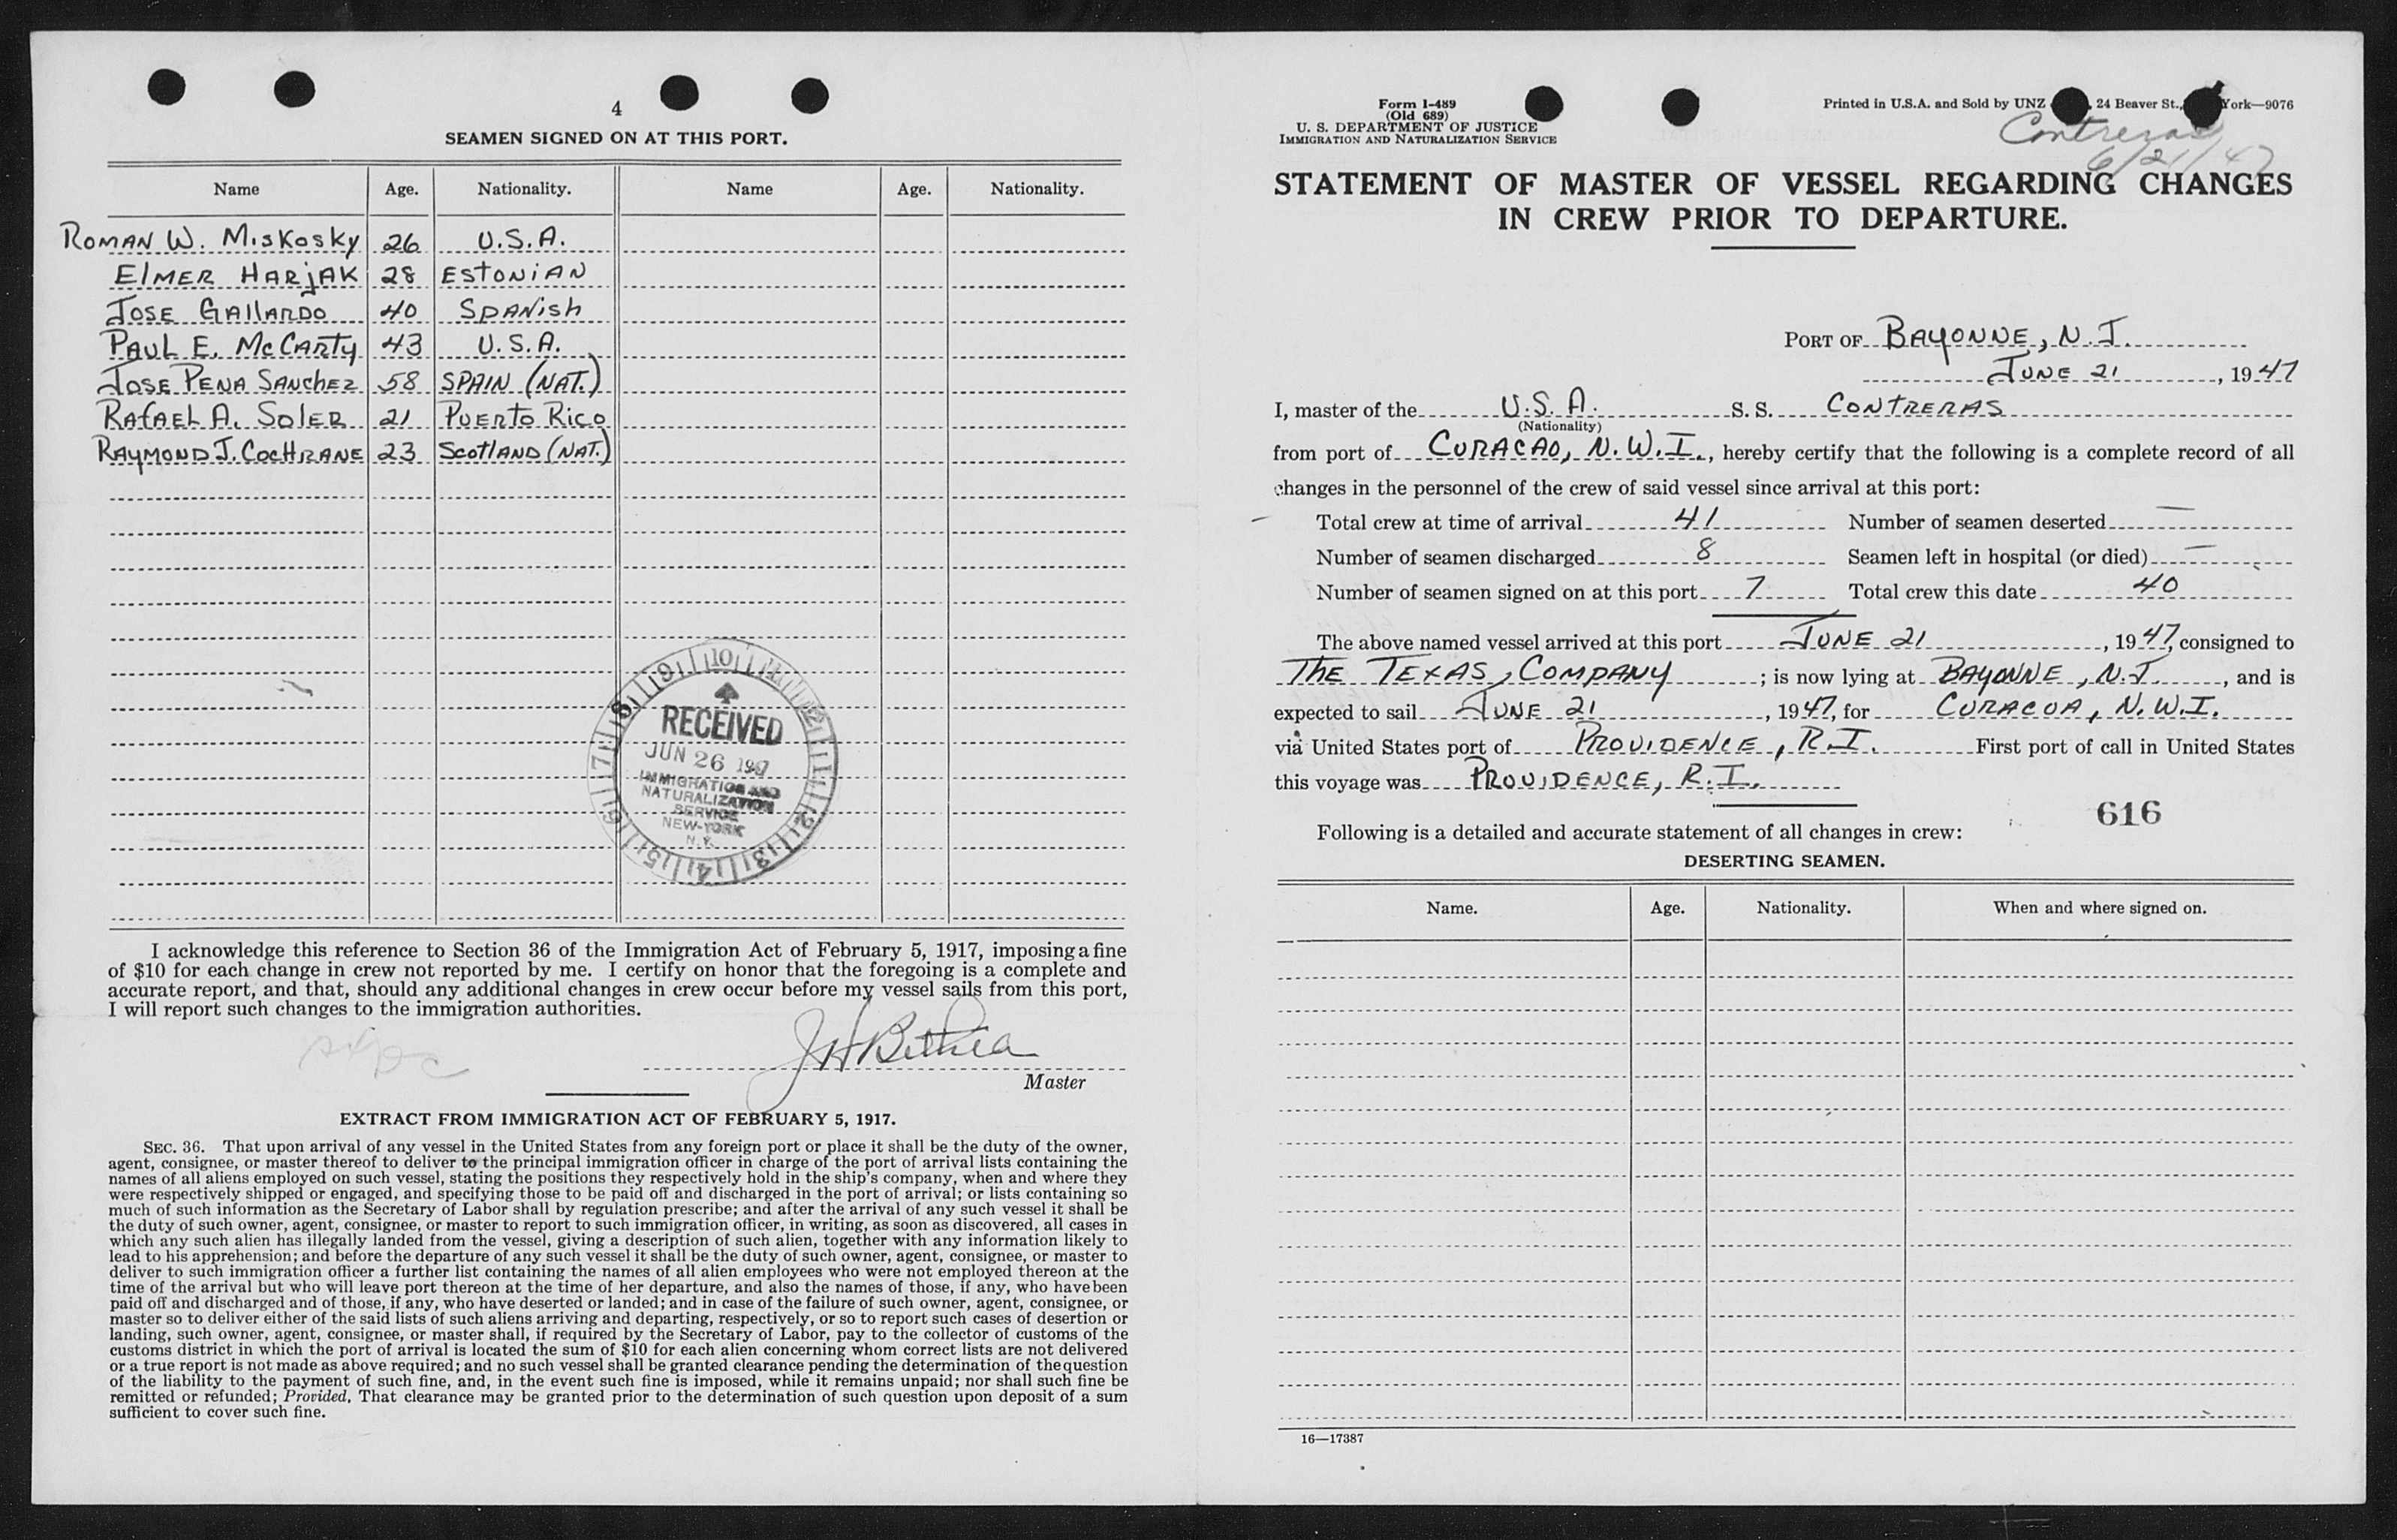 4
SEAMEN SIGNED ON AT THIS PORT.
Name Age. Nationality. Name Age. Nationality.
ROMAN W. MISKOSKY 26 U.S.A.
ELMER HARJAK 28 ESTONIAN
JOSE GALLARDO 40 SPANISH
PAUL E. McCARTY 43 U.S.A.
JOSE PENA SANCHEZ 58 SPAIN (NAT.)
RAFAEL A. SOLER 21 PUERTO RICO
RAYMOND J. COCHRANE 23 SCOTLAND (NAT.)
RECEIVED
JUN 26 1947
IMMIGRATION AND
NATURALIZATION
SERVICE
NEW-YORK
N.Y.
I acknowledge this reference to Section 36 of the Immigration Act of February 5, 1917, imposing a fine
of $10 for each change in crew not reported by me. I certify on honor that the foregoing is a complete and
accurate report, and that, should any additional changes in crew occur before my vessel sails from this port,
I will report such changes to the immigration authorities.
JH Bethea
Master
EXTRACT FROM IMMIGRATION ACT OF FEBRUARY 5, 1917.
SEC. 36. That upon arrival of any vessel in the United States from any foreign port or place it shall be the duty of the owner,
agent, consignee, or master thereof to deliver to the principal immigration officer in charge of the port of arrival lists containing the
names of all aliens employed on such vessel, stating the positions they respectively hold in the ship's company, when and where they
were respectively shipped or engaged, and specifying those to be paid off and discharged in the port of arrival; or lists containing so
much of such information as the Secretary of Labor shall by regulation prescribe; and after the arrival of any such vessel it shall be
the duty of such owner, agent, consignee, or master to report to such immigration officer, in writing, as soon as discovered, all cases in
which any such alien has illegally landed from the vessel, giving a description of such alien, together with any information likely to
lead to his apprehension; and before the departure of any such vessel it shall be the duty of such owner, agent, consignee, or master to
deliver to such immigration officer a further list containing the names of all alien employees who were not employed thereon at the
time of the arrival but who will leave port thereon at the time of her departure, and also the names of those, if any, who have been
paid off and discharged and of those, if any, who have deserted or landed; and in case of the failure of such owner, agent, consignee, or
master so to deliver either of the said lists of such aliens arriving and departing, respectively, or so to report such cases of desertion or
landing, such owner, agent, consignee, or master shall, if required by the Secretary of Labor, pay to the collector of customs of the
customs district in which the port of arrival is located the sum of $10 for each alien concerning whom correct lists are not delivered
or a true report is not made as above required; and no such vessel shall be granted clearance pending the determination of the question
of the liability to the payment of such fine, and, in the event such fine is imposed, while it remains unpaid; nor shall such fine be
remitted or refunded; Provided, That clearance may be granted prior to the determination of such question upon deposit of a sum
sufficient to cover such fine.
Form I-489
(Old 689)
U. S. DEPARTMENT OF JUSTICE
IMMIGRATION AND NATURALIZATION SERVICE
Printed in U.S.A. and Sold by UNZ 24 Beaver St., York—9076
Contreras
6/21/47
STATEMENT OF MASTER OF VESSEL REGARDING CHANGES
IN CREW PRIOR TO DEPARTURE.
PORT OF BAYONNE, N.J.
JUNE 21, 1947
I, master of the U.S.A. S. S. CONTRERAS
(Nationality)
from port of CURACAO, N.W.I., hereby certify that the following is a complete record of all
changes in the personnel of the crew of said vessel since arrival at this port:
Total crew at time of arrival 41 Number of seamen deserted —
Number of seamen discharged 8 Seamen left in hospital (or died) —
Number of seamen signed on at this port 7 Total crew this date 40
The above named vessel arrived at this port JUNE 21, 1947, consigned to
THE TEXAS COMPANY; is now lying at BAYONNE, N.J., and is
expected to sail JUNE 21, 1947, for CURACOA, N.W.I.
via United States port of PROVIDENCE, R.I. First port of call in United States
this voyage was PROVIDENCE, R.I.
616
Following is a detailed and accurate statement of all changes in crew:
DESERTING SEAMEN.
Name. Age. Nationality. When and where signed on.
16—17387